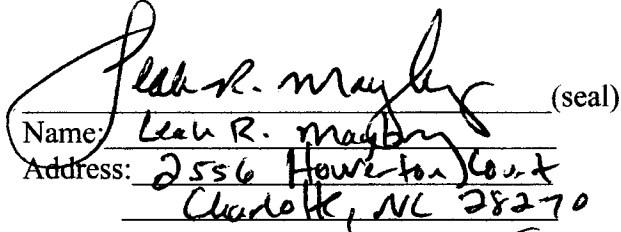 Leah R. Mayby (seal)
Name: Leah R. Maybry
Address: 2556 Howerton Court
Charlotte, NC 28270